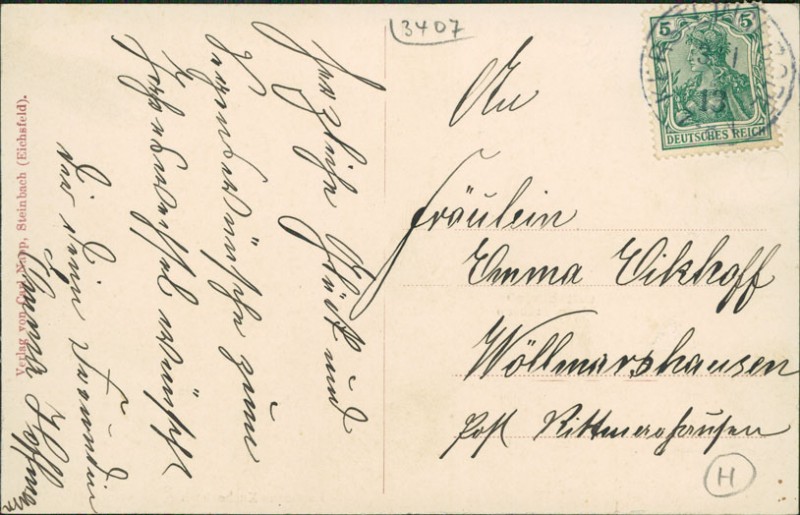 3407
Herzliche Glück und
Segenswünsche zum
Jahreswechsel wünscht
Dir Deine Freundin
Hoffmann
An
Fräulein
Emma Eikhoff
Wöllmarshausen
Post Rittmarshausen
H
5 5
DEUTSCHES REICH
13
Verlag von Carl Napp, Steinbach (Eichsfeld).